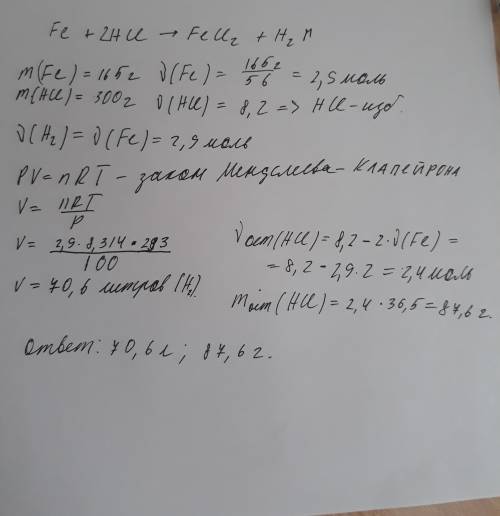 Fe + 2HCl → FeCl₂ + H₂ ↑
m(Fe) = 165г ν(Fe) = 165г/56 = 2,9 моль
m(HCl) = 300г ν(HCl) = 8,2 => HCl - изб.
ν(H₂) = ν(Fe) = 2,9 моль
PV = nRT - закон Менделеева - Клапейрона
V = nRT/P
V = 2,9 · 8,314 · 293/100
V = 70,6 литров (H₂).
νост(HCl) = 8,2 - 2 · ν(Fe) =
= 8,2 - 2,9 · 2 = 2,4 моль
mост(HCl) = 2,4 · 36,5 = 87,6 г.
Ответ: 70,6 л; 87,6 г.